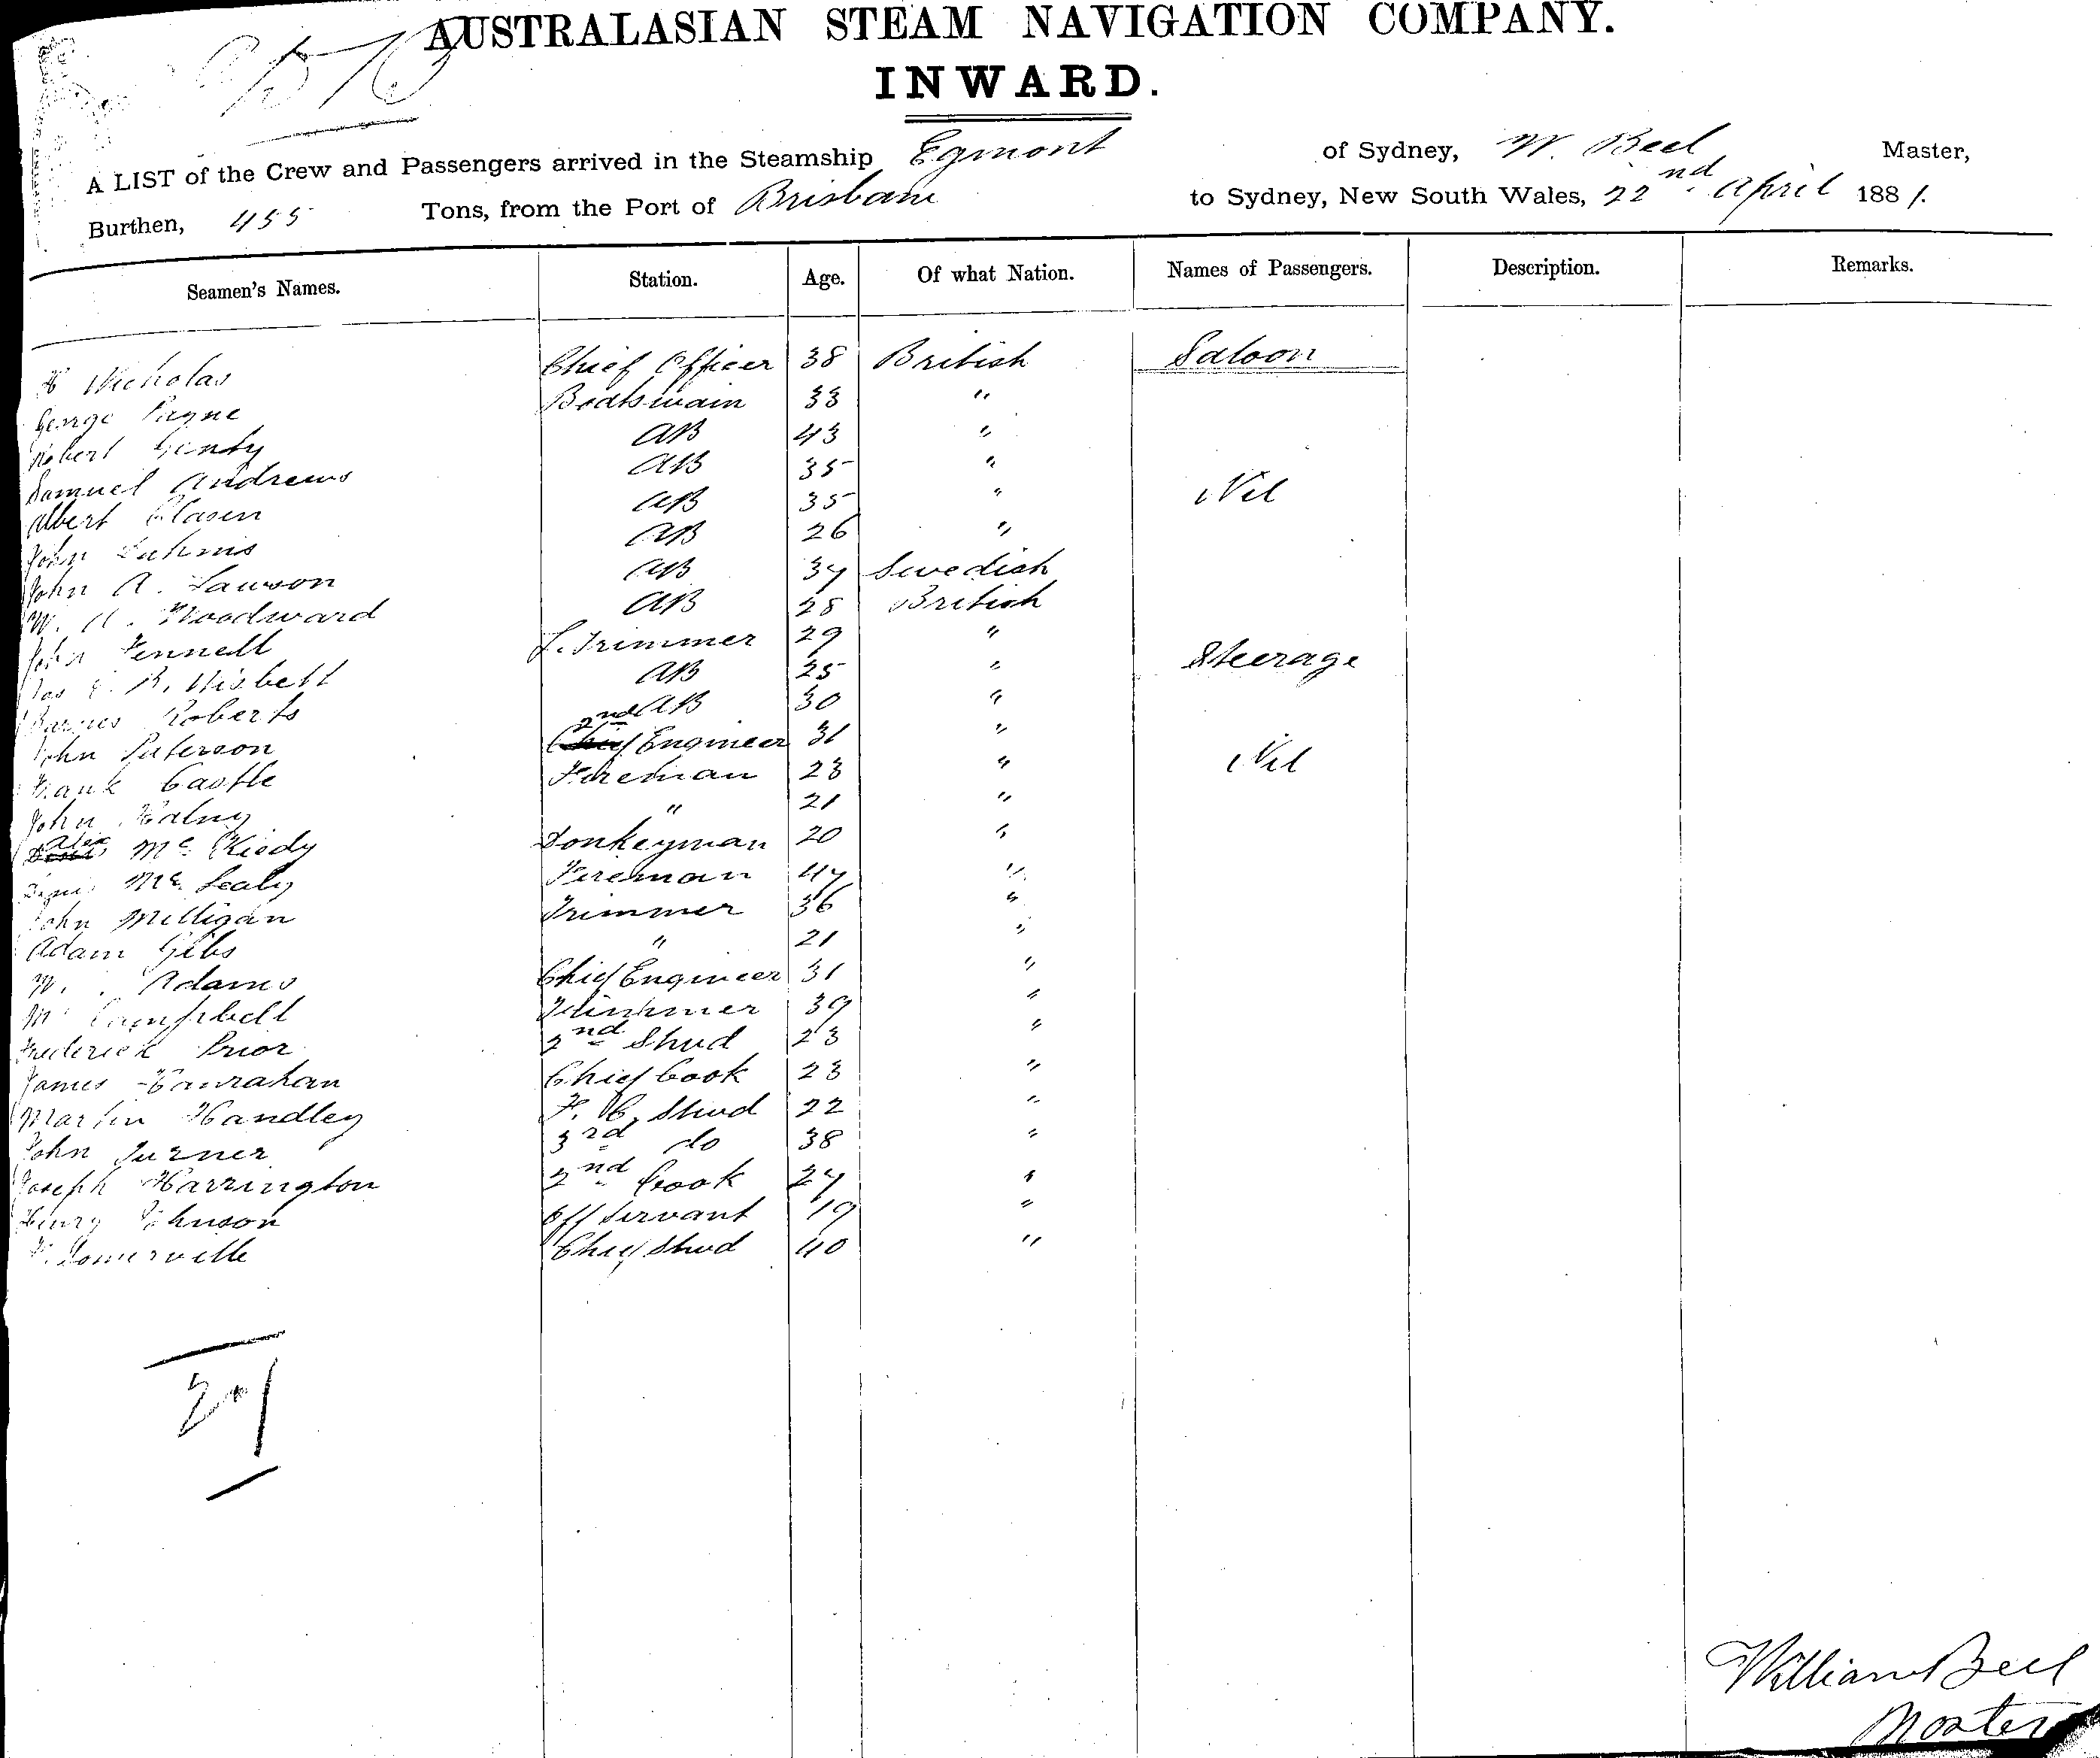 AUSTRALASIAN STEAM NAVIGATION COMPANY.
INWARD.
A LIST of the Crew and Passengers arrived in the Steamship Egmont of Sydney, W. Beel Master,
Burthen, 455 Tons, from the Port of Brisbane to Sydney, New South Wales, 22nd April 1881.
Seamen's Names. Station. Age. Of what Nation. Names of Passengers. Description. Remarks.
H Nicholas Chief Officer 38 British Saloon
George Payne Boatswain 33 "
Robert Genty AB 43 "
Samuel Andrews AB 35 "
Albert Clasen AB 35 " Nil
John AB 26 "
John A. Lawson AB 34 Swedish
W. H. Woodward AB 28 British
John Fennell L. Trimmer 29 "
R. Nisbett AB 25 " Steerage
Barnes Roberts AB 30 "
John Paterson 2nd Engineer 31 "
Frank Castle Fireman 23 " Nil
John " 21 "
Alex Mc Kiedy Donkeyman 20 "
Mc Sealy Fireman 44 "
John Milligan Trimmer 36 "
Adam Gibs " 21 "
W. Adams Chief Engineer 31 "
Campbell 39 "
Frederick Prior 2nd Stwd 23 "
James Hanrahan Chief Cook 23 "
Martin Handley F. C. Stwd 22 "
John Turner 3rd do 38 "
Joseph Harrington 2nd Cook 24 "
Henry Johnson Off Servant 19 "
Somerville Chief Stwd 40 "
27
William Beel
Master